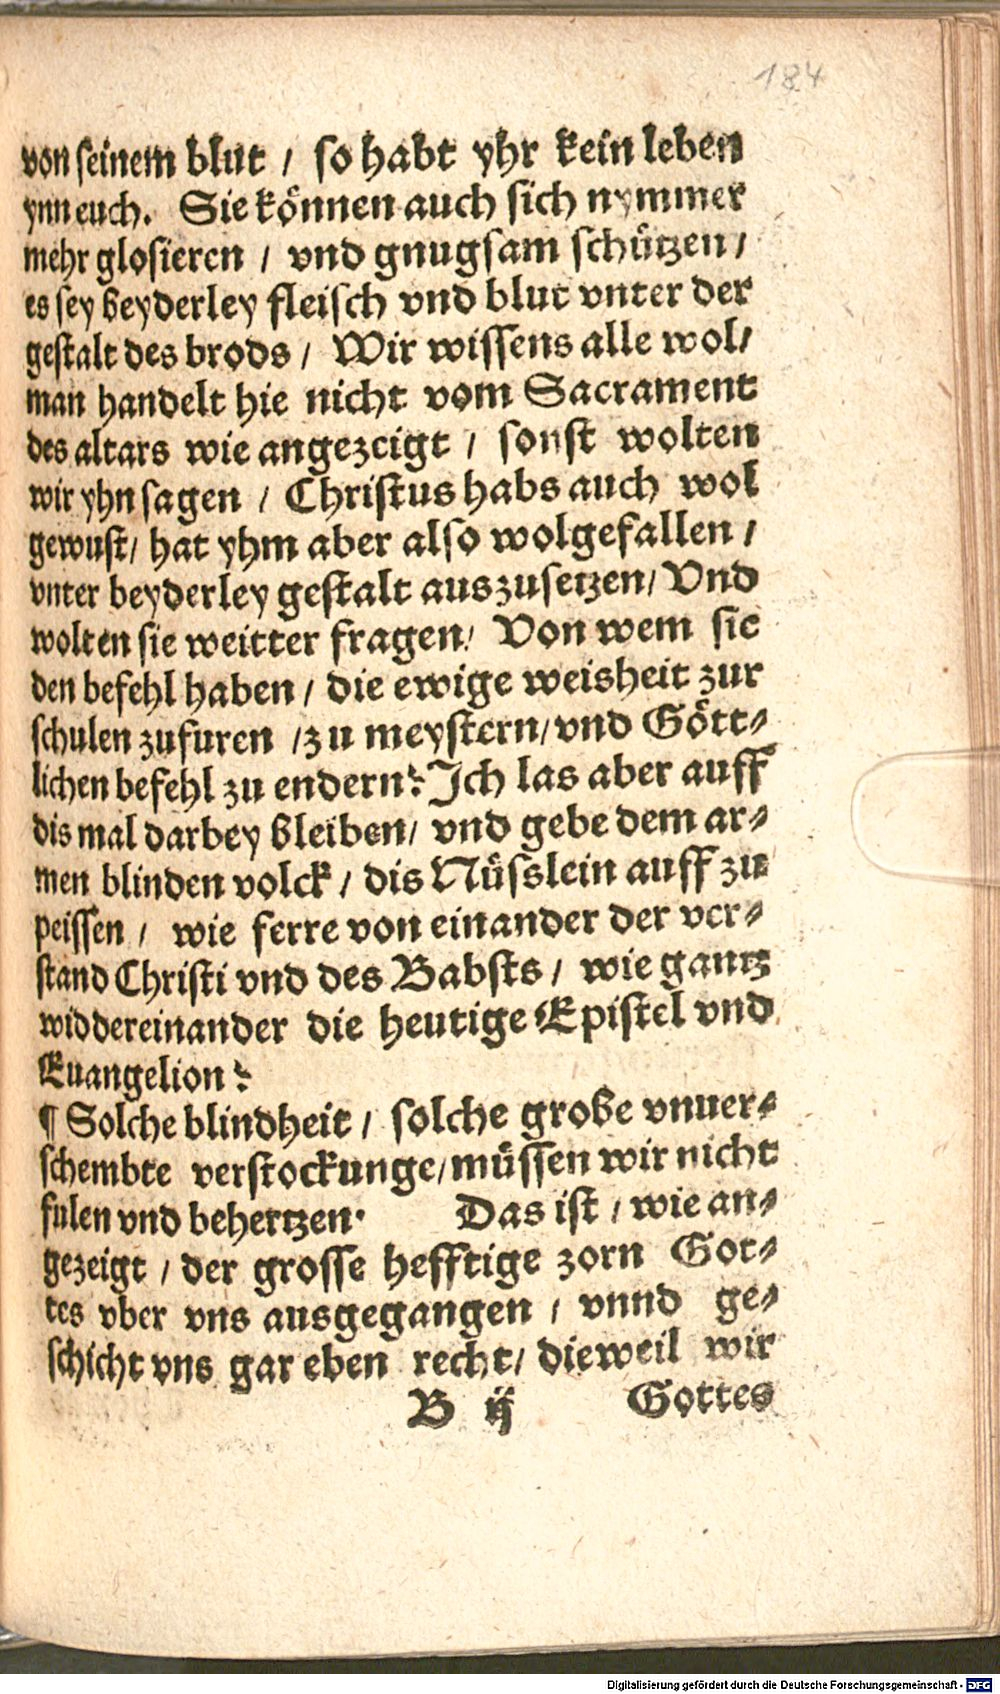 184
von seinem blut / so habt yhr kein leben
ynn euch. Sie können auch sich nymmer
mehr glosieren / vnd gnugsam schützen /
es sey beyderley fleisch vnd blut vnter der
gestalt des brods / Wir wissens alle wol /
man handelt hie nicht vom Sacrament
des altars wie angezeigt / sonst wolten
wir yhn sagen / Christus habs auch wol
gewust / hat yhm aber also wolgefallen /
vnter beyderley gestalt auszusetzen / Vnd
wolten sie weitter fragen / Von wem sie
den befehl haben / die ewige weisheit zur
schulen zufuren / zu meystern / vnd Gött-
lichen befehl zu endern? Ich las aber auff
dis mal darbey bleiben / vnd gebe dem ar-
men blinden volck / dis Nüsslein auff zu
peissen / wie ferre von einander der ver-
stand Christi vnd des Babsts / wie gantz
widdereinander die heutige Epistel vnd
Euangelion?
¶ Solche blindheit / solche große vnuer-
schembte verstockunge / müssen wir nicht
fulen vnd behertzen. Das ist / wie an-
gezeigt / der grosse hefftige zorn Got-
tes vber vns ausgegangen / vnnd ge-
schicht vns gar eben recht / dieweil wir
B ij Gottes
Digitalisierung gefördert durch die Deutsche Forschungsgemeinschaft - DFG